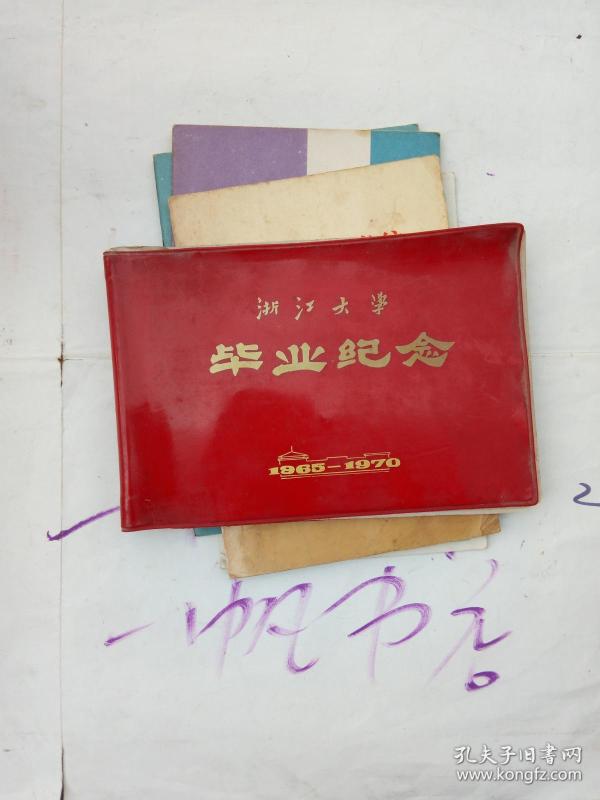 浙江大學
毕业纪念
1965-1970
一帆书店
2
孔夫子旧书网
www.kongfz.com